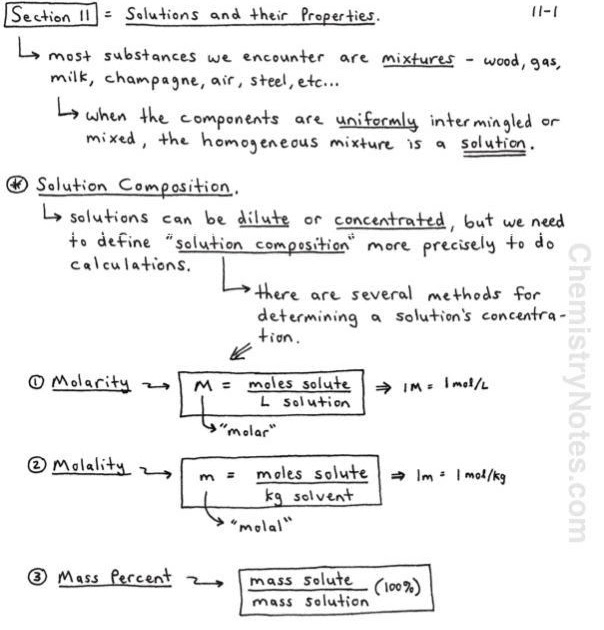 Section 11 = Solutions and their Properties.
11-1
↳ most substances we encounter are mixtures - wood, gas,
milk, champagne, air, steel, etc...
↳ when the components are uniformly intermingled or
mixed, the homogeneous mixture is a solution.
* Solution Composition.
↳ solutions can be dilute or concentrated, but we need
to define "solution composition" more precisely to do
calculations.
there are several methods for
determining a solution's concentra-
tion.
① Molarity → M = moles solute / L solution ⇒ 1M = 1 mol/L
"molar"
② Molality → m = moles solute / kg solvent ⇒ 1m = 1 mol/kg
"molal"
③ Mass Percent → mass solute / mass solution (100%)
ChemistryNotes.com